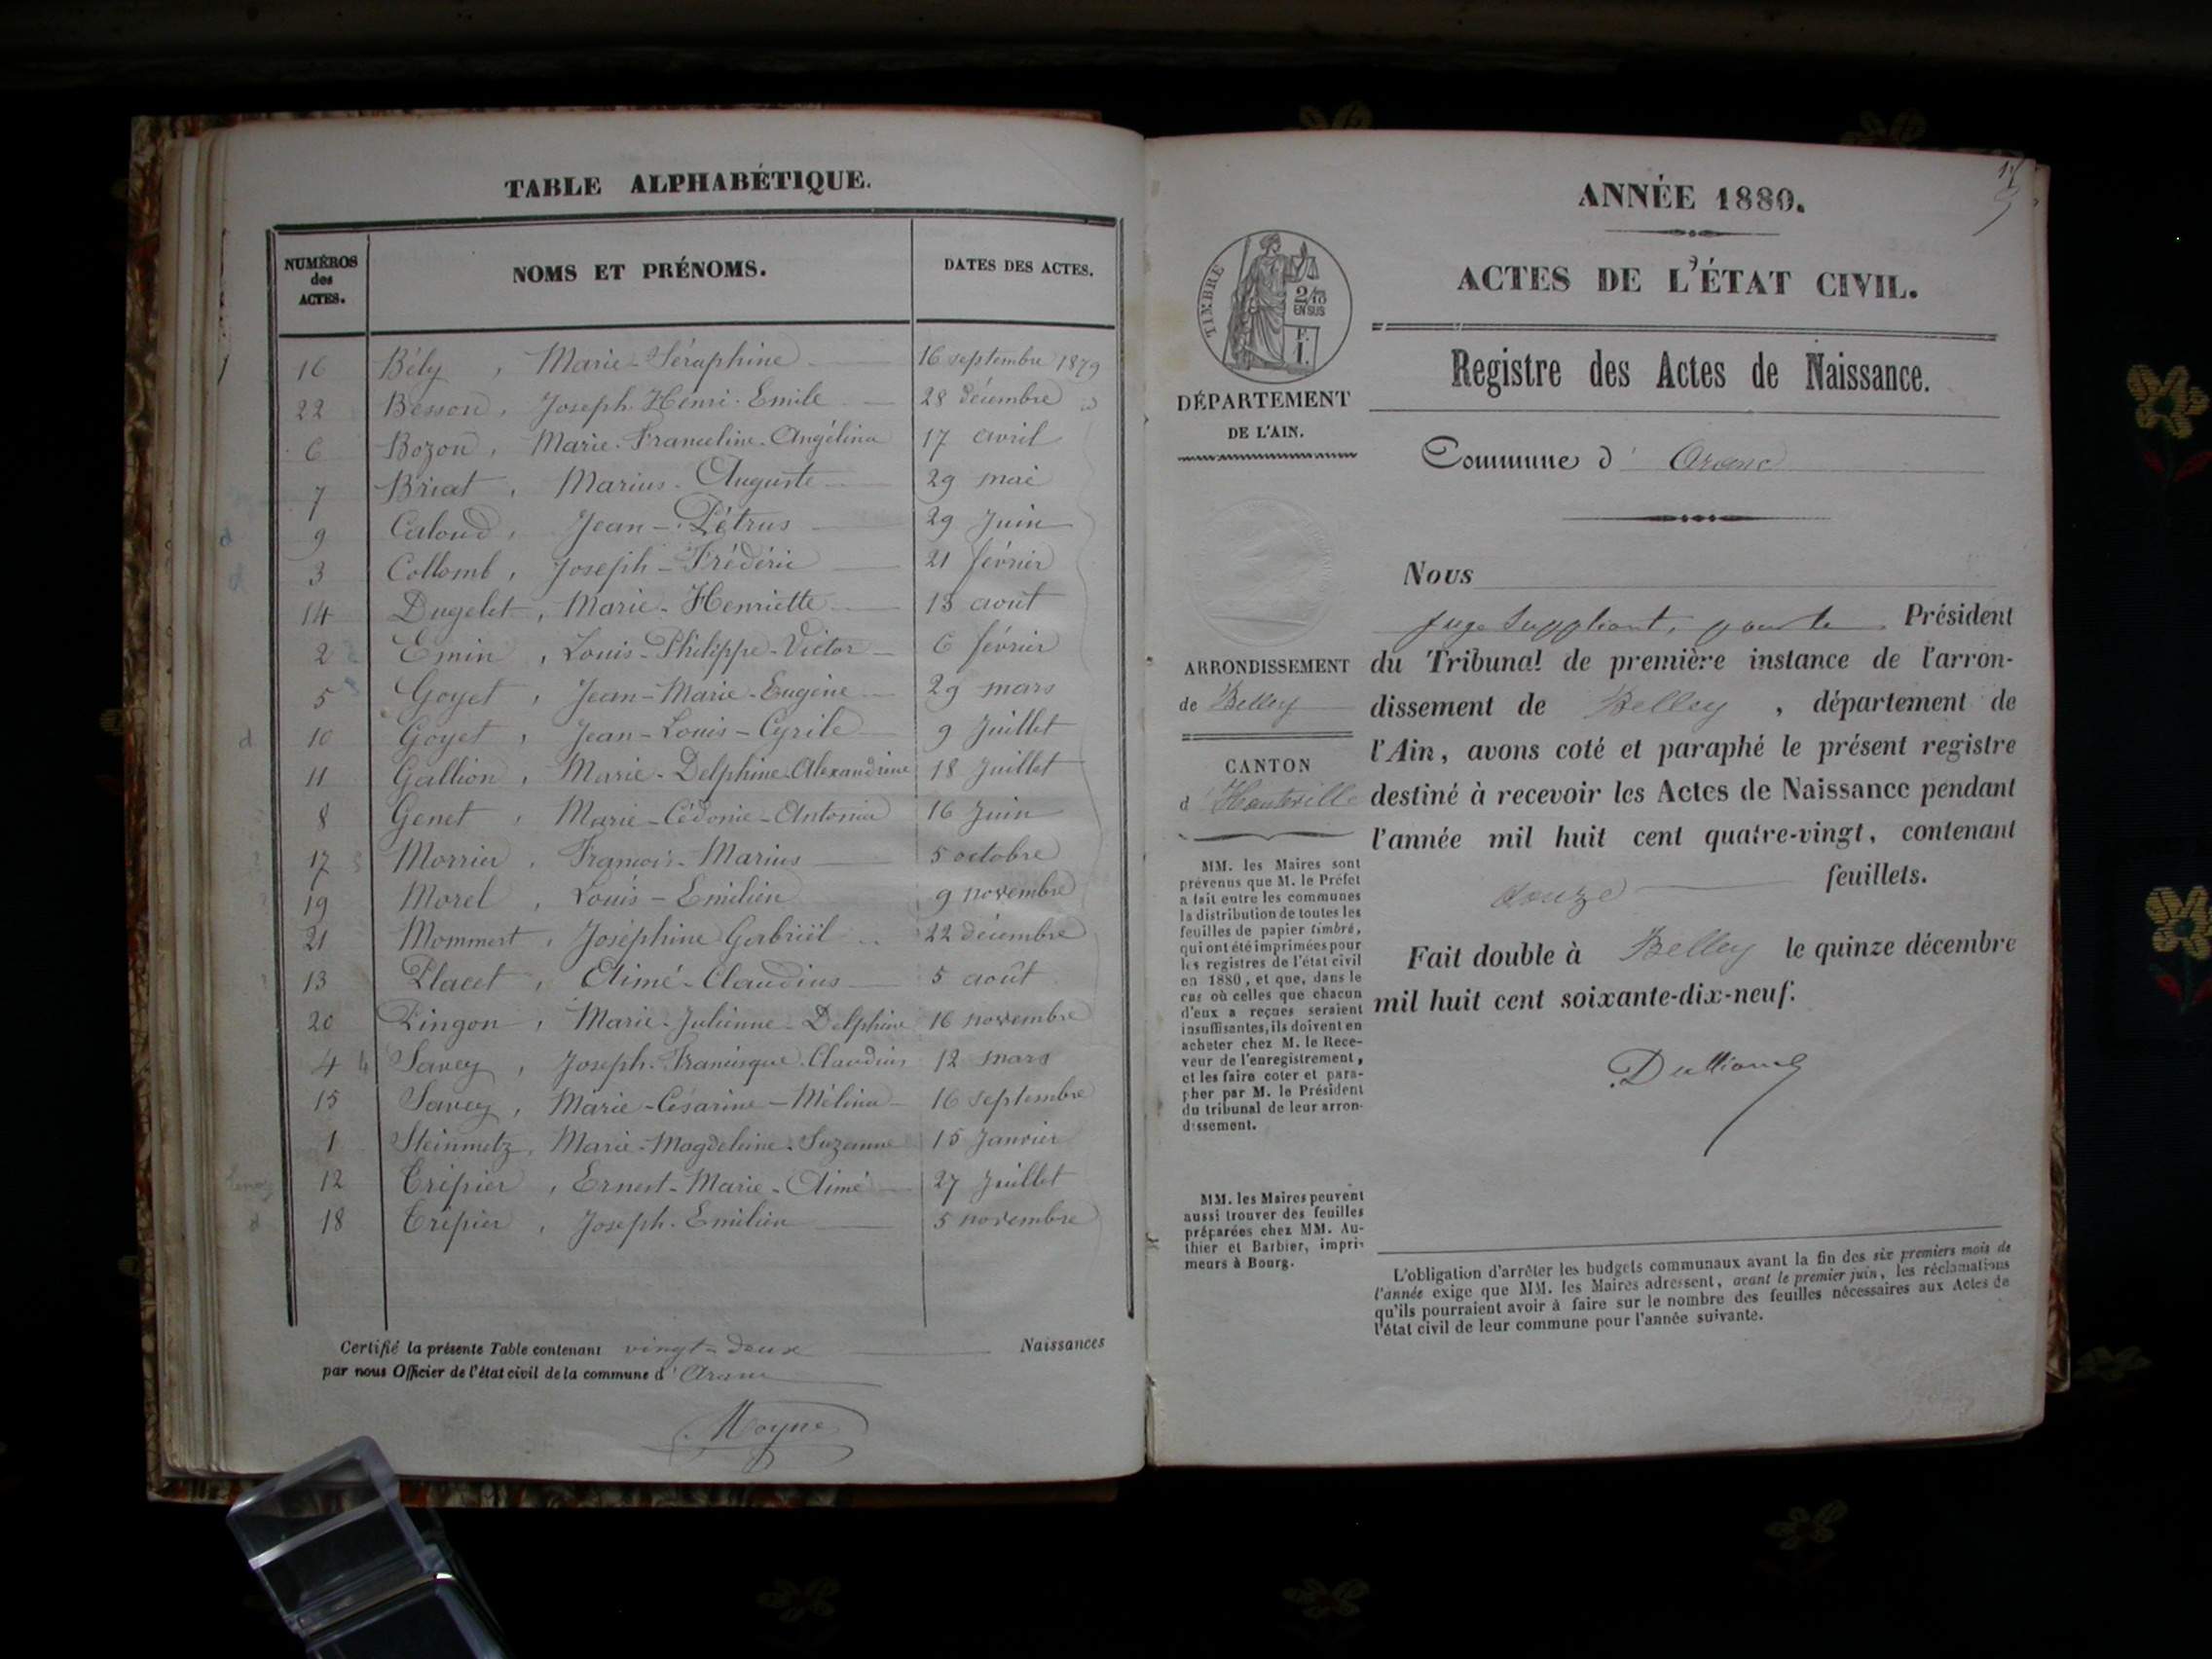 TABLE ALPHABÉTIQUE.
NUMÉROS des ACTES.
NOMS ET PRÉNOMS.
DATES DES ACTES.
16 Bély, Marie-Séraphine 16 septembre 1879
22 Besson, Joseph-Henri-Emile 28 décembre
6 Bozon, Marie-Franceline-Angélina 17 avril
7 Briat, Marius-Auguste 29 mai
9 Caloud, Jean-Pétrus 29 Juin
3 Collomb, Joseph-Frédéric 21 février
14 Dugelet, Marie-Henriette 13 août
2 Emin, Louis-Philippe-Victor 6 février
5 Goyet, Jean-Marie-Eugène 29 mars
10 Goyet, Jean-Louis-Cyrile 9 Juillet
11 Gallion, Marie-Delphine-Alexandrine 18 Juillet
8 Genet, Marie-Cédonie-Antonia 16 Juin
17 Morrier, François-Marius 5 octobre
19 Morel, Louis-Emilien 9 novembre
21 Mommert, Joséphine Gabriël 22 décembre
13 Placet, Aimé-Claudius 5 août
20 Pingon, Marie-Julienne-Delphine 16 novembre
4 Savey, Joseph-Francisque-Claudius 12 mars
15 Savey, Marie-Césarine-Mélina 16 septembre
1 Steinmetz, Marie-Magdeleine-Suzanne 15 Janvier
12 Trépier, Ernest-Marie-Aimé 27 Juillet
18 Trépier, Joseph-Emilien 5 novembre
Certifié la présente Table contenant vingt-deux Naissances
par nous Officier de l'état civil de la commune d'Aranc
Moyne
ANNÉE 1880.
ACTES DE L'ÉTAT CIVIL.
TIMBRE
2/10
EN SUS
F.
1.
DÉPARTEMENT
DE L'AIN.
ARRONDISSEMENT
de Belley
CANTON
d'Hauteville
MM. les Maires sont
prévenus que M. le Préfet
a fait entre les communes
la distribution de toutes les
feuilles de papier timbré,
qui ont été imprimées pour
les registres de l'état civil
en 1880, et que, dans le
cas où celles que chacun
d'eux a reçues seraient
insuffisantes, ils doivent en
acheter chez M. le Rece-
veur de l'enregistrement,
et les faire coter et para-
pher par M. le Président
du tribunal de leur arron-
dissement.
MM. les Maires peuvent
aussi trouver des feuilles
préparées chez MM. Au-
thier et Barbier, impri-
meurs à Bourg.
Registre des Actes de Naissance.
Commune d'Aranc
Nous
Juge Suppléant, pour le Président
du Tribunal de première instance de l'arron-
dissement de Belley, département de
l'Ain, avons coté et paraphé le présent registre
destiné à recevoir les Actes de Naissance pendant
l'année mil huit cent quatre-vingt, contenant
douze feuillets.
Fait double à Belley le quinze décembre
mil huit cent soixante-dix-neuf.
L'obligation d'arrêter les budgets communaux avant la fin des six premiers mois de
l'année exige que MM. les Maires adressent, avant le premier juin, les réclamations
qu'ils pourraient avoir à faire sur le nombre des feuilles nécessaires aux Actes de
l'état civil de leur commune pour l'année suivante.